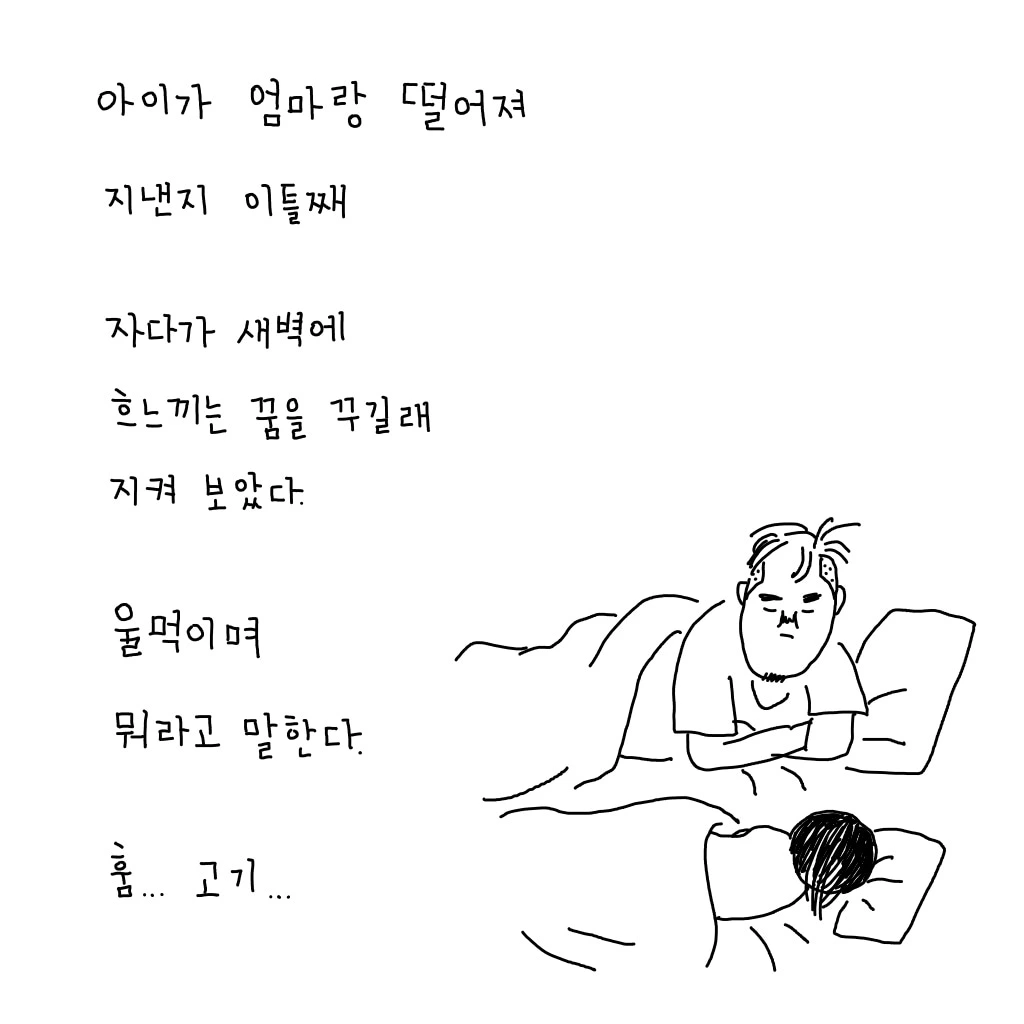 아이가 엄마랑 떨어져
지낸지 이틀째
자다가 새벽에
흐느끼는 꿈을 꾸길래
지켜 보았다.
울먹이며
뭐라고 말한다.
훔... 고기...